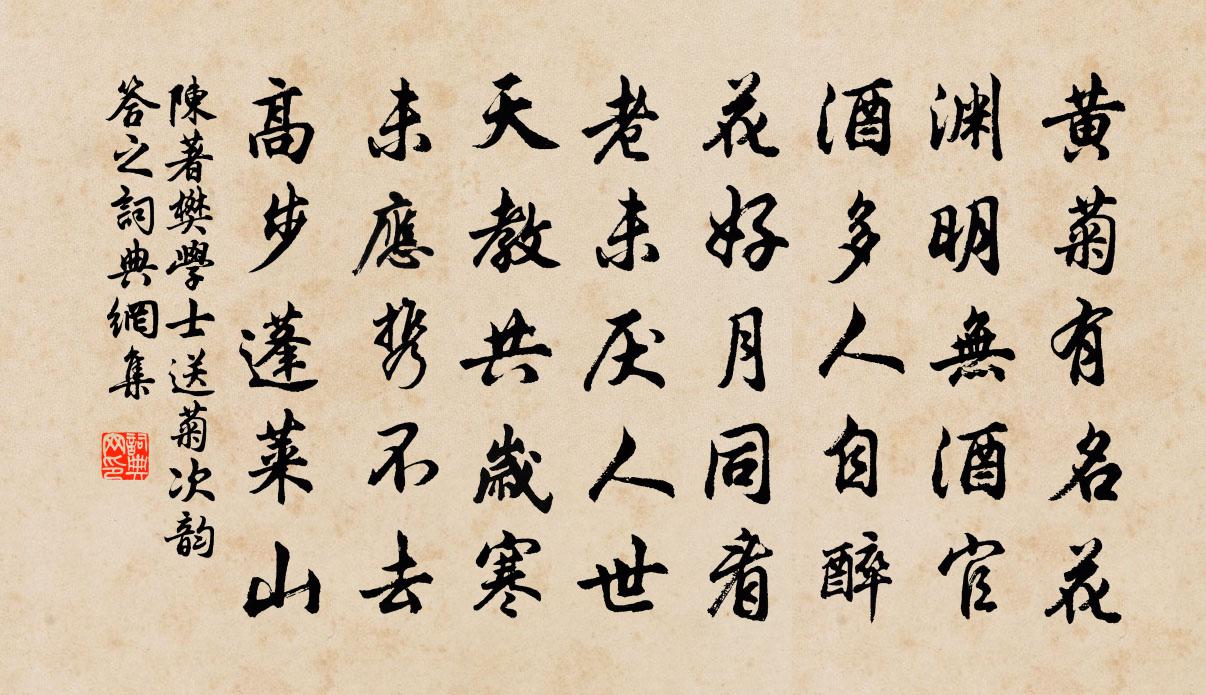 黄菊有名花
渊明無酒官
酒多人自醉
花好月同看
老未厌人世
天教共歲寒
未應携不去
高步蓬莱山
陳著樊學士送菊次韵
答之詞典網集
詞典网印